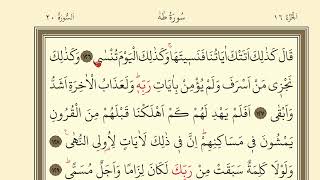 الجزء ١٦ سورة طه السورة ٢٠
قَالَ كَذَٰلِكَ أَتَتْكَ آيَاتُنَا فَنَسِيتَهَا وَكَذَٰلِكَ الْيَوْمَ تُنْسَىٰ ﴿١٢٦﴾ وَكَذَٰلِكَ
نَجْزِي مَنْ أَسْرَفَ وَلَمْ يُؤْمِنْ بِآيَاتِ رَبِّهِ وَلَعَذَابُ الْآخِرَةِ أَشَدُّ
وَأَبْقَىٰ ﴿١٢٧﴾ أَفَلَمْ يَهْدِ لَهُمْ كَمْ أَهْلَكْنَا قَبْلَهُمْ مِنَ الْقُرُونِ
يَمْشُونَ فِي مَسَاكِنِهِمْ إِنَّ فِي ذَٰلِكَ لَآيَاتٍ لِأُولِي النُّهَىٰ ﴿١٢٨﴾
وَلَوْلَا كَلِمَةٌ سَبَقَتْ مِنْ رَبِّكَ لَكَانَ لِزَامًا وَأَجَلٌ مُسَمًّى ﴿١٢٩﴾